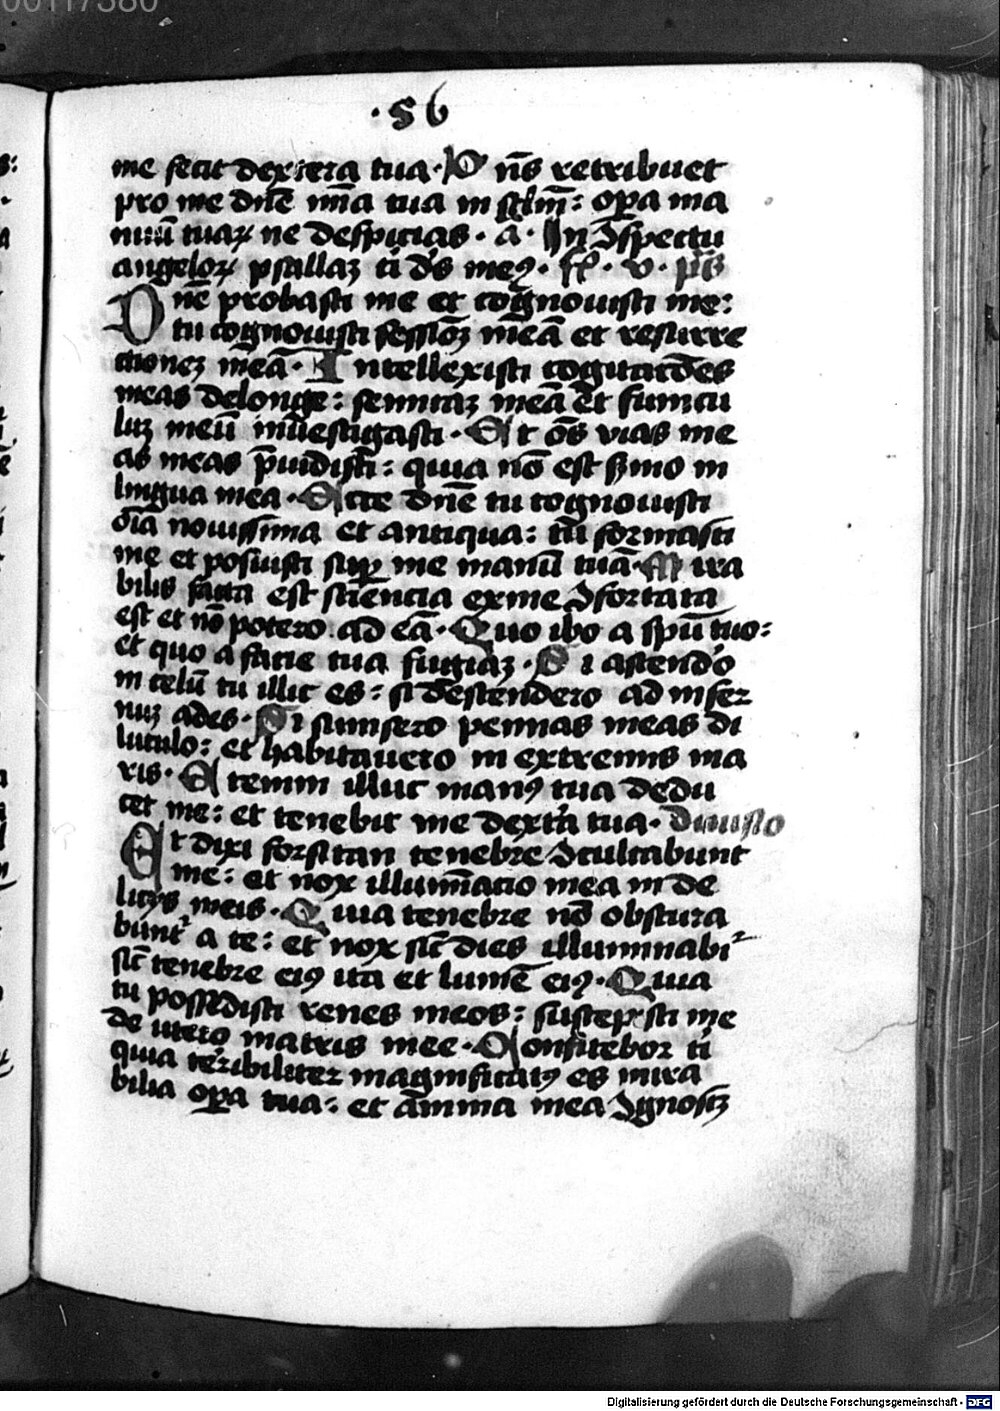 00117380
·56
me fecit dextera tua· Dn̄s retribuet
pro me dn̄e mīa tua in sc̄lm̄: oꝑa ma
nuū tuaꝝ ne despicias· a· In ꝯspectu
angeloꝝ psallaꝫ ti dꝰs meꝰ·
Dn̄e probasti me et cognouisti me:
tu cognouisti sessioꝫ meā et resurre
ctioneꝫ meā· Intellexisti cogitatōes
meas delonge: semitaꝫ meā et funicu
luꝫ meū inuestigasti· Et om̄s vias me
as meas p̄uidisti: quia nō est ẜmo in
lingua mea· Ecce dn̄e tu cognouisti
oīa nouissima et antiqua: tu formasti
me et posuisti suꝑ me manū tuā· Mira
bilis facta est sciencia ex me ꝯfortata
est et nō potero ad eā· Quo ibo a spū tuo:
et quo a facie tua fugiaꝫ· Si ascendo
in celū tu illic es: si descendero ad infer
nuꝫ ades· Si sumsero pennas meas di
luculo: et habitauero in extremis ma
ris· Etenim illuc manꝰ tua dedu
cet me: et tenebit me dext̓a tua· Diuisio
Et dixi forsitan tenebre ꝯculcabunt
me: et nox illumīatio mea in de
licijs meis· Quia tenebre nō obscura
bunt᷑ a te: et nox sic̄ dies illuminabi᷑
sic̄ tenebre eiꝰ ita et lumē eiꝰ· Quia
tu possedisti renes meos: suscepisti me
de utero matris mee· Confitebor ti
quia terribiliter magnificatꝰ es mira
bilia oꝑa tua: et anima mea ꝯgnosꝫ
Digitalisierung gefördert durch die Deutsche Forschungsgemeinschaft - DFG